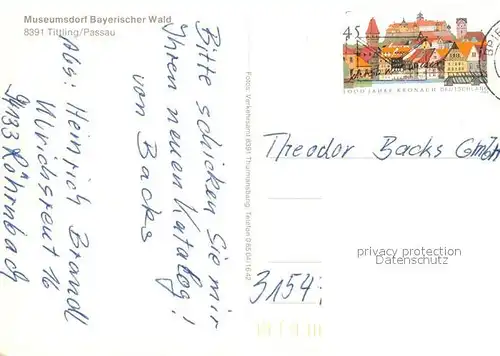 Museumsdorf Bayerischer Wald
8391 Tittling/Passau
Abs: Heinrich Brandl
Ulrichsreut 16
94133 Röhrnbach
Bitte schicken Sie mir
Ihren neuen Katalog!
von Backs
Fotos: Verkehrsamt 8391 Thurmansbang, Telefon 08504/1642
45
1000 JAHRE KRONACH DEUTSCHLAND
BRIE
Theodor Backs GmbH
privacy protection
Datenschutz
3154